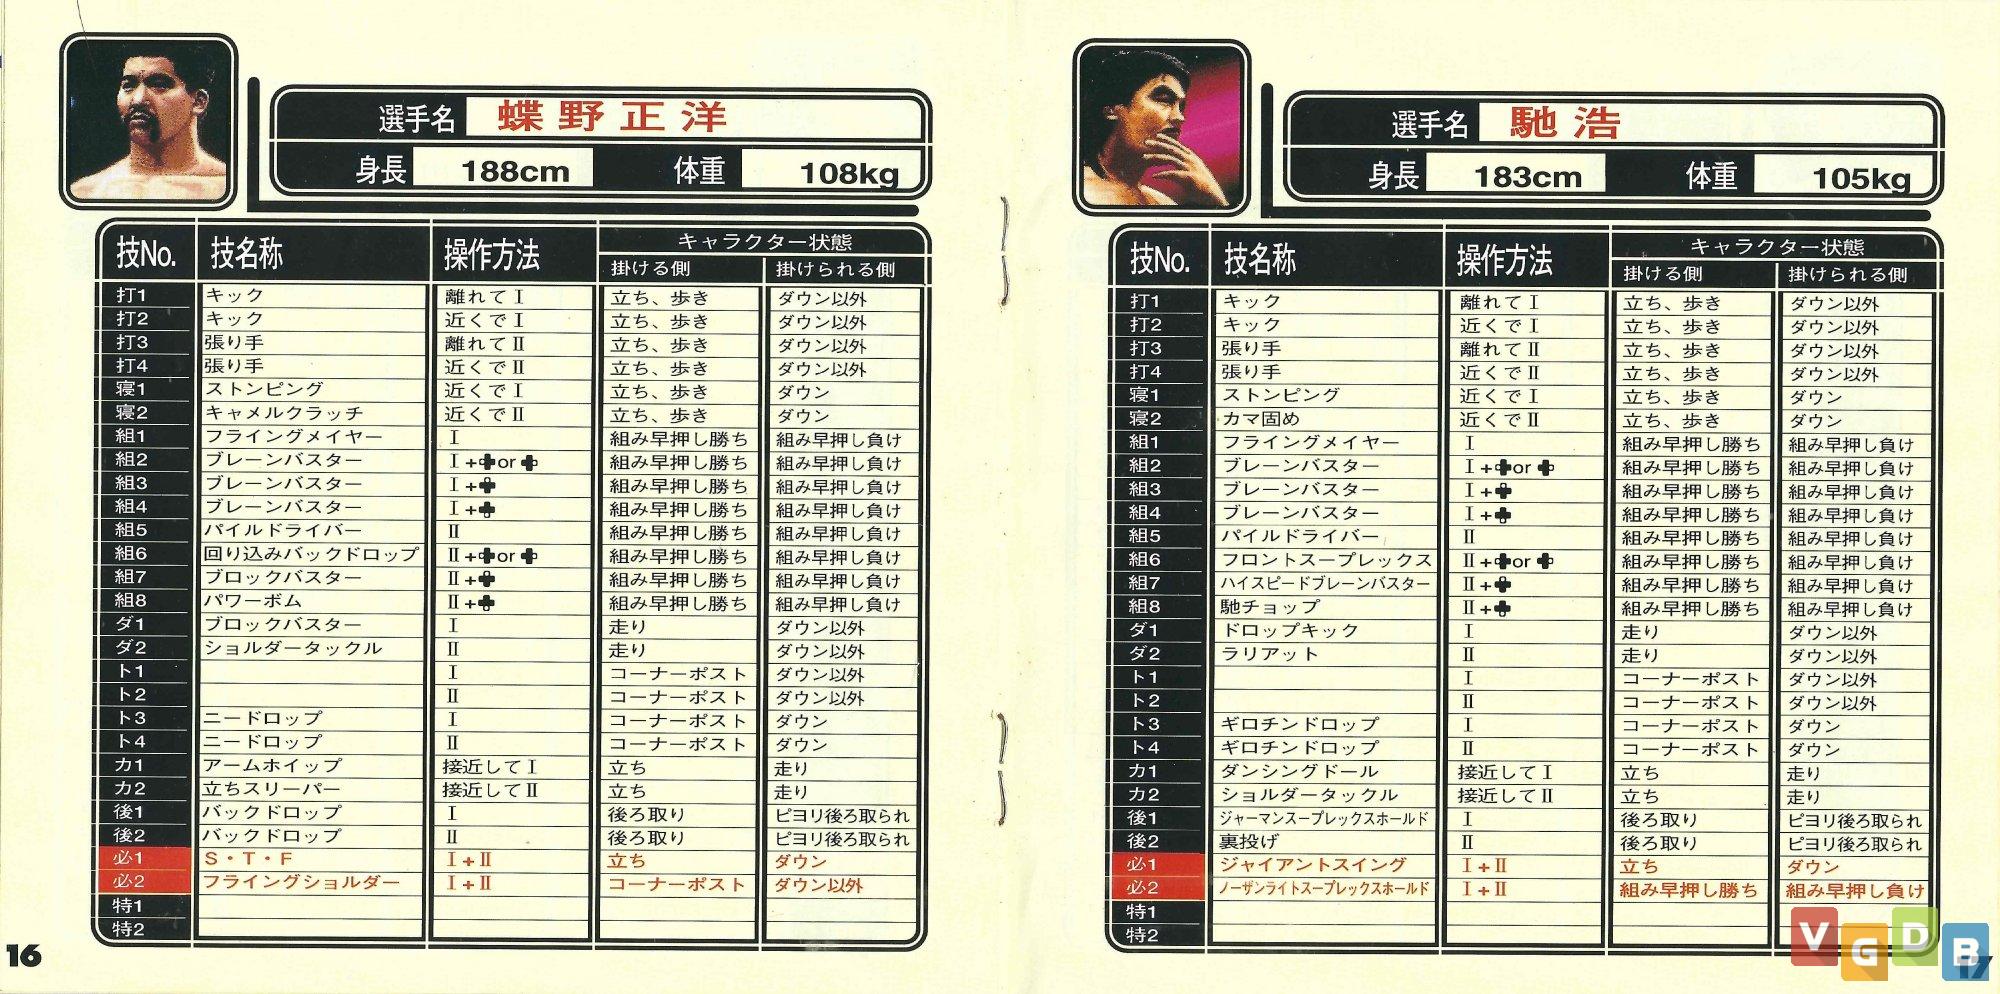 選手名 蝶野正洋
身長 188cm 体重 108kg
技No. 技名称 操作方法 キャラクター状態
掛ける側 掛けられる側
打1 キック 離れてⅠ 立ち、歩き ダウン以外
打2 キック 近くでⅠ 立ち、歩き ダウン以外
打3 張り手 離れてⅡ 立ち、歩き ダウン以外
打4 張り手 近くでⅡ 立ち、歩き ダウン以外
寝1 ストンピング 近くでⅠ 立ち、歩き ダウン
寝2 キャメルクラッチ 近くでⅡ 立ち、歩き ダウン
組1 フライングメイヤー Ⅰ 組み早押し勝ち 組み早押し負け
組2 ブレーンバスター Ⅰ+or 組み早押し勝ち 組み早押し負け
組3 ブレーンバスター Ⅰ+ 組み早押し勝ち 組み早押し負け
組4 ブレーンバスター Ⅰ+ 組み早押し勝ち 組み早押し負け
組5 パイルドライバー Ⅱ 組み早押し勝ち 組み早押し負け
組6 回り込みバックドロップ Ⅱ+or 組み早押し勝ち 組み早押し負け
組7 ブロックバスター Ⅱ+ 組み早押し勝ち 組み早押し負け
組8 パワーボム Ⅱ+ 組み早押し勝ち 組み早押し負け
ダ1 ブロックバスター Ⅰ 走り ダウン以外
ダ2 ショルダータックル Ⅱ 走り ダウン以外
ト1 Ⅰ コーナーポスト ダウン以外
ト2 Ⅱ コーナーポスト ダウン以外
ト3 ニードロップ Ⅰ コーナーポスト ダウン
ト4 ニードロップ Ⅱ コーナーポスト ダウン
カ1 アームホイップ 接近してⅠ 立ち 走り
カ2 立ちスリーパー 接近してⅡ 立ち 走り
後1 バックドロップ Ⅰ 後ろ取り ピヨリ後ろ取られ
後2 バックドロップ Ⅱ 後ろ取り ピヨリ後ろ取られ
必1 S・T・F Ⅰ+Ⅱ 立ち ダウン
必2 フライングショルダー Ⅰ+Ⅱ コーナーポスト ダウン以外
特1
特2
16
選手名 馳浩
身長 183cm 体重 105kg
技No. 技名称 操作方法 キャラクター状態
掛ける側 掛けられる側
打1 キック 離れてⅠ 立ち、歩き ダウン以外
打2 キック 近くでⅠ 立ち、歩き ダウン以外
打3 張り手 離れてⅡ 立ち、歩き ダウン以外
打4 張り手 近くでⅡ 立ち、歩き ダウン以外
寝1 ストンピング 近くでⅠ 立ち、歩き ダウン
寝2 カマ固め 近くでⅡ 立ち、歩き ダウン
組1 フライングメイヤー Ⅰ 組み早押し勝ち 組み早押し負け
組2 ブレーンバスター Ⅰ+or 組み早押し勝ち 組み早押し負け
組3 ブレーンバスター Ⅰ+ 組み早押し勝ち 組み早押し負け
組4 ブレーンバスター Ⅰ+ 組み早押し勝ち 組み早押し負け
組5 パイルドライバー Ⅱ 組み早押し勝ち 組み早押し負け
組6 フロントスープレックス Ⅱ+or 組み早押し勝ち 組み早押し負け
組7 ハイスピードブレーンバスター Ⅱ+ 組み早押し勝ち 組み早押し負け
組8 馳チョップ Ⅱ+ 組み早押し勝ち 組み早押し負け
ダ1 ドロップキック Ⅰ 走り ダウン以外
ダ2 ラリアット Ⅱ 走り ダウン以外
ト1 Ⅰ コーナーポスト ダウン以外
ト2 Ⅱ コーナーポスト ダウン以外
ト3 ギロチンドロップ Ⅰ コーナーポスト ダウン
ト4 ギロチンドロップ Ⅱ コーナーポスト ダウン
カ1 ダンシングドール 接近してⅠ 立ち 走り
カ2 ショルダータックル 接近してⅡ 立ち 走り
後1 ジャーマンスープレックスホールド Ⅰ 後ろ取り ピヨリ後ろ取られ
後2 裏投げ Ⅱ 後ろ取り ピヨリ後ろ取られ
必1 ジャイアントスイング Ⅰ+Ⅱ 立ち ダウン
必2 ノーザンライトスープレックスホールド Ⅰ+Ⅱ 組み早押し勝ち 組み早押し負け
特1
特2
17
VGDB